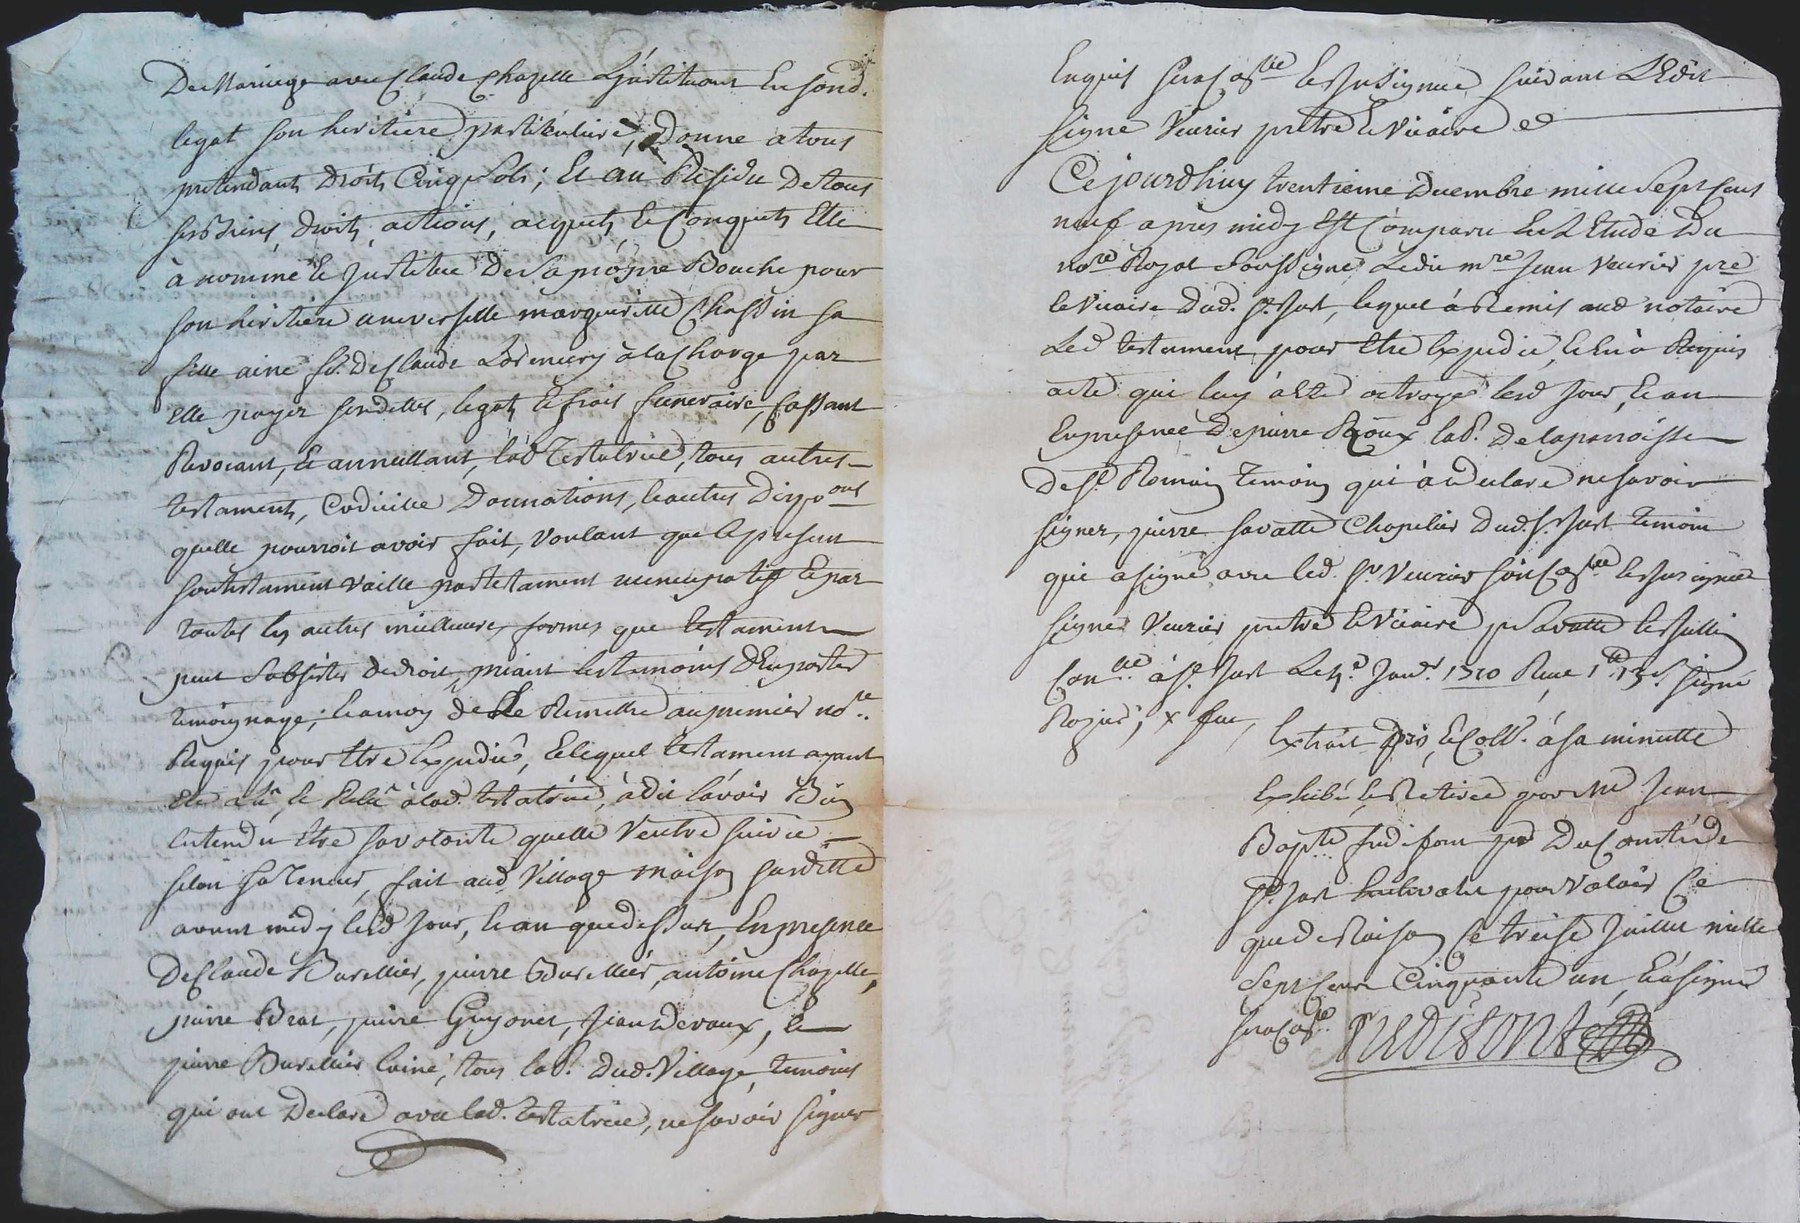 De Mariage avec Claude Chazelle L'instituant En sond.
legat son heritiere particuliere, Donne a tous
pretendants Droits Cinq Sols; Et au Residu De tous
ses Biens, droits, actions, acquets, & Conquets Elle
à nommé & Institué De Sa propre Bouche pour
son heritiere universelle margueritte Chassin sa
fille ainé fe. De Claude à la Charge par
Elle payer ses dettes, legats & frais funeraire, Cassant
Revocant, & annullant, lad. Testatrice, tous autres
testaments, Codicille Donnations, & autres Dispoons
quelle pourroit avoir fait, Voulant que le present
son testament Vaille par testament nuncupatif & par
toutes les autres meilleures formes que testament
peut Subsister de droit, priant les temoins d'En porter
temoignage, & a moy de Le Remettre au premier nore.
Requis pour Etre Expedié, & lequel testament ayant
Eté lu & Relu à lad. testatrice, à dit l'avoir Bien
Entendu Etre sa volonté quelle Veut Etre suivie
selon sa Teneur, fait aud. Village maison sa ditte
avant midy lesd Jour, & an que dessus, En presence
De Claude Burellier, pierre Burellier, antoine Chazelle,
pierre Brat, pierre Guyonet, Jean Devaux, &
pierre Burellier l'ainé, tous hab. dud. Village, temoins
qui ont Declaré avec lad. testatrice, ne savoir signer
Enquis suivant L'Edit
signé Veurier pretre & Vicaire &
Ce jourdhuy trentieme Decembre mille Sept Cens
neuf apres midy Est Comparu En L'Etude Du
nore Royal Soussigné Ledit mre Jean Veurier pre
& Vicaire Dud. St. Just, lequel à Remis aud notaire
Led testament pour Etre Expedié, & En à Requis
acte qui luy à Eté octroyé lesd Jour, & an
En presence De pierre Rioux hab. De la paroisse
De St. Romain temoin qui à declaré ne savoir
signer, pierre Savatte Chapelier Dud. St. Just temoin
qui a signé avec led. Sr Veurier
signé Veurier pretre & Vicaire p Savatte
Conlle à St. Just Le 4e. Janr. 1710 Reçu signé
Extrait pris, & Colle. à sa minutte
Exhibé & Retirée par Me Jean
Bapte fredifont Du Comté de
St. Just pour Valoir Ce
que de Raison Ce treise Juillet mille
Sept Cens Cinquante un, & à signé
fredifont